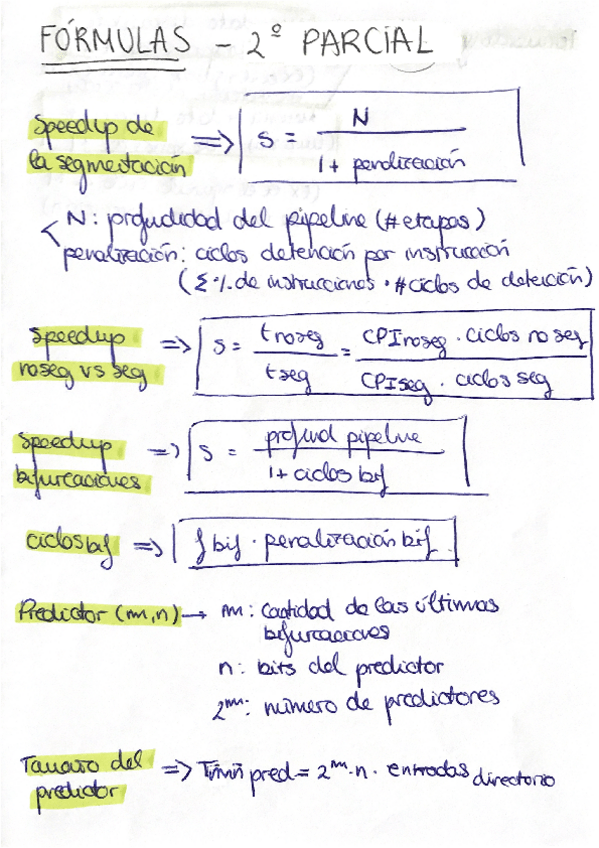 FÓRMULAS - 2º PARCIAL
Speedup de la segmentación => S = N / (1 + penalización)
N: profudidad del pipeline (# etapas)
penalización: ciclos detención por instrucción
(Σ % de instrucciones · # ciclos de detención)
Speedup noseg vs seg => S = tnoseg / tseg = CPInoseg · ciclos no seg / CPIseg · ciclos seg
Speedup bifurcaciones => S = profund pipeline / (1 + ciclos bif)
ciclos bif => f bif · penalización bif
Predictor (m,n) → m: cantidad de las últimas
bifurcaciones
n: bits del predictor
2^m: número de predictores
Tamaño del predictor => Tmñ pred = 2^m · n · entradas directorio